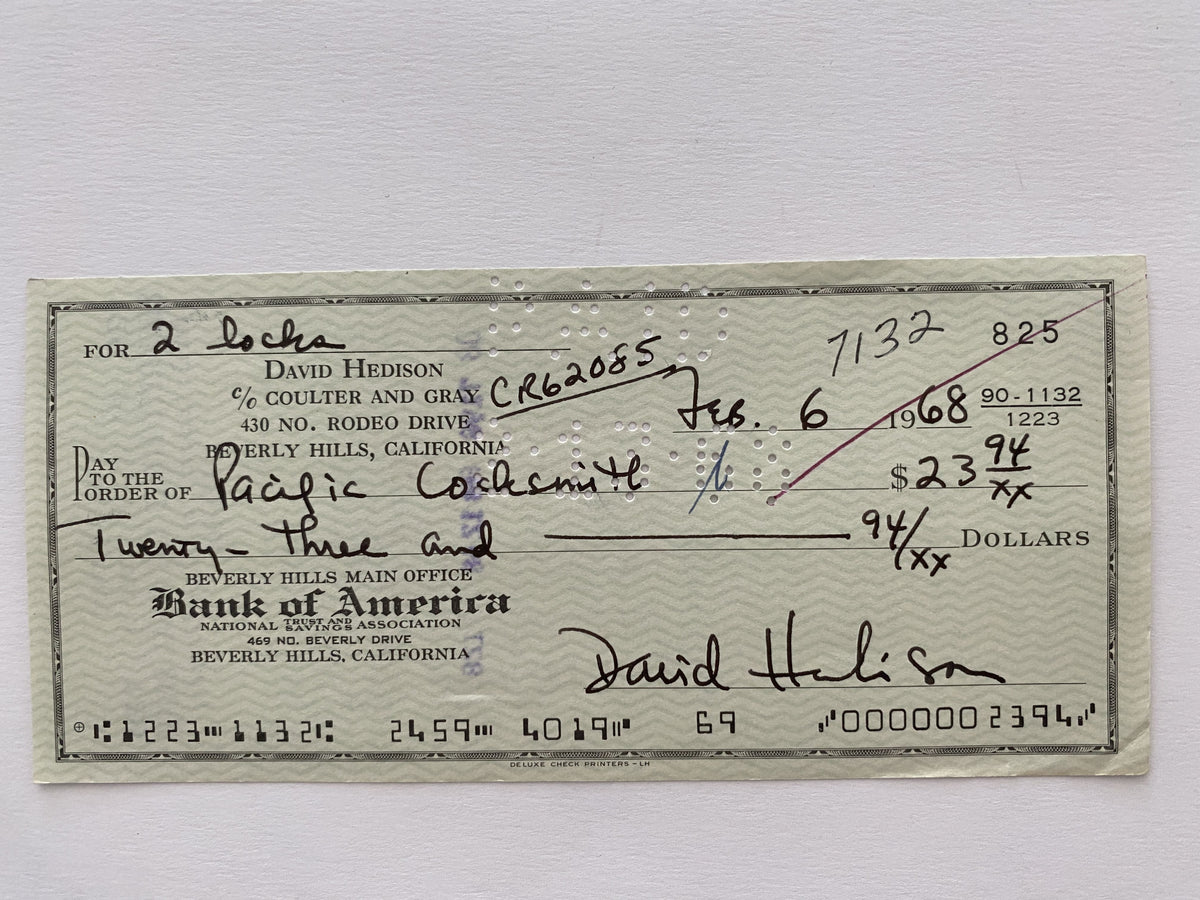 FOR 2 locks
DAVID HEDISON
c/o COULTER AND GRAY
430 NO. RODEO DRIVE
BEVERLY HILLS, CALIFORNIA
CR62085
7132
825
FEB. 6 1968
90-1132
1223
PAY TO THE ORDER OF Pacific Locksmith $23 94/xx
Twenty-three and 94/xx DOLLARS
BEVERLY HILLS MAIN OFFICE
Bank of America
NATIONAL TRUST AND SAVINGS ASSOCIATION
469 NO. BEVERLY DRIVE
BEVERLY HILLS, CALIFORNIA
David Hedison
⑆1223⑉1132⑆ 2459⑉ 4019⑈ 69 ⑈0000002394⑈
DELUXE CHECK PRINTERS - LH